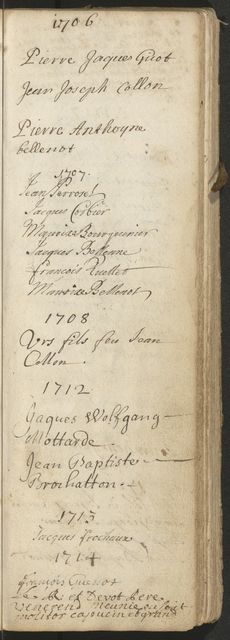 1706
Pierre Jaques Guot
Jean Joseph Collon
Pierre Anthoyne
bellenot
1707
Jean Perrosel
Jacque Corbier
Maurice Bourquinier
Jacques Bellenne
francois Ruellet
Maurice Bellenot
1708
Vrs fils feu Jean
Collon.
1712
Jaques Wolfgang
Mottarde.
Jean Baptiste
Brochatton.
1713
Jacques frochaux
1714
francois Guenot
Le et Devot pere
Venerend meunie
molitor capucin